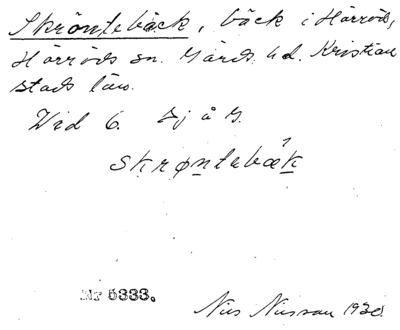 Skröntebäck, bäck i Hörröds,
Hörröds sn. Gärds hd. Kristian
stads län.
Wid 6. Dj å G.
skrøntebæk
Nr 5333.
Nils Nilsson 1930.